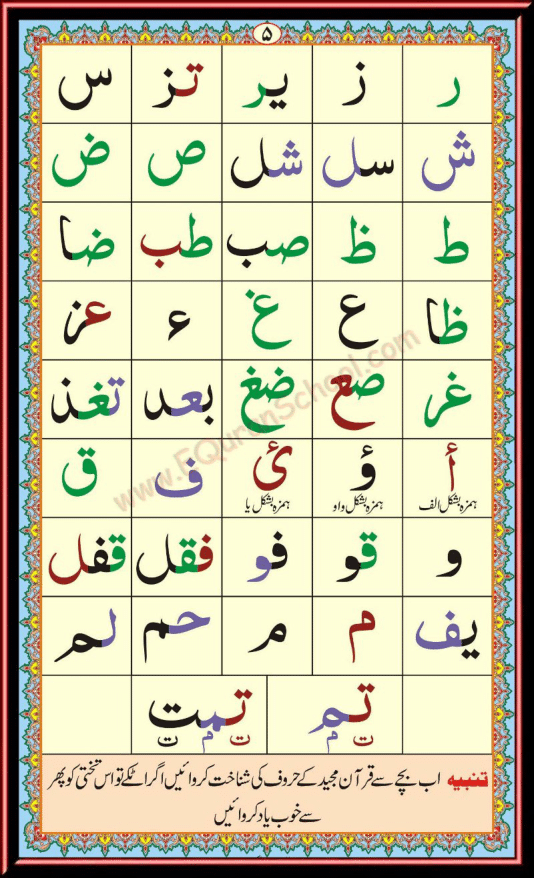 ۵
ر ز یر تز س
ش سل شل ص ض
ط ظ صب طب ضا
ظا ع غ ء عز
غر صع ضغ بعد تغذ
أ ؤ ئ ف ق
ہمزہ بشکل الف ہمزہ بشکل واو ہمزہ بشکل یا
و قو فو فقل قفل
یف م م حم لم
تم تمت
ت م ت م ت
تنبیہ اب بچے سے قرآن مجید کے حروف کی شناخت کروائیں اگر اٹکے تو اس تختی کو پھر
سے خوب یاد کروائیں
www.EQuranSchool.com